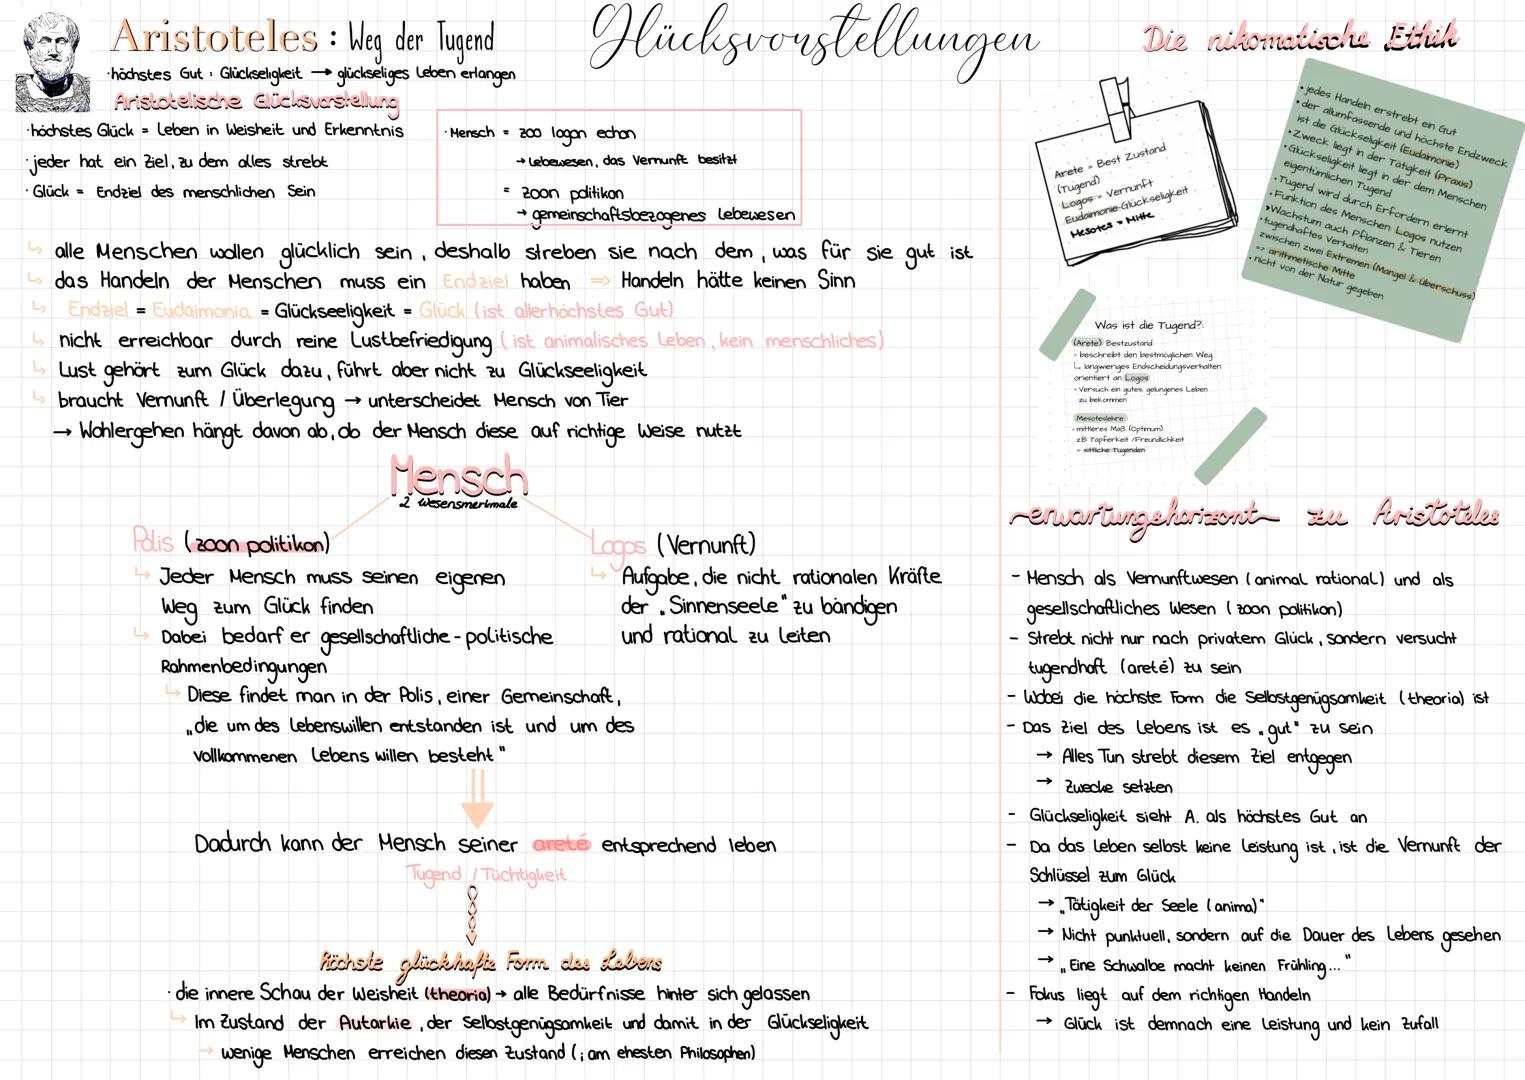 Glücksvorstellungen
Aristoteles : Weg der Tugend
·höchstes Gut : Glückseligkeit → glückseliges Leben erlangen
Aristotelische Glücksvorstellung
·höchstes Glück = Leben in Weisheit und Erkenntnis
·jeder hat ein Ziel, zu dem alles strebt
· Glück = Endziel des menschlichen Sein
· Mensch = zoo logon echon
→ Lebewesen, das Vernunft besitzt
= zoon politikon
→ gemeinschaftsbezogenes Lebewesen
↳ alle Menschen wollen glücklich sein, deshalb streben sie nach dem, was für sie gut ist
↳ das Handeln der Menschen muss ein Endziel haben ⇒ Handeln hätte keinen Sinn
↳ Endziel = Eudaimonia = Glückseeligkeit = Glück (ist allerhöchstes Gut)
↳ nicht erreichbar durch reine Lustbefriedigung (ist animalisches Leben, kein menschliches)
↳ Lust gehört zum Glück dazu, führt aber nicht zu Glückseeligkeit
↳ braucht Vernunft / Überlegung → unterscheidet Mensch von Tier
→ Wohlergehen hängt davon ab, ob der Mensch diese auf richtige Weise nutzt
Mensch
2 Wesensmerkmale
Polis (zoon politikon)
↳ Jeder Mensch muss seinen eigenen
Weg zum Glück finden
↳ Dabei bedarf er gesellschaftliche-politische
Rahmenbedingungen
↳ Diese findet man in der Polis, einer Gemeinschaft,
„die um des Lebenswillen entstanden ist und um des
vollkommenen Lebens willen besteht"
Logos (Vernunft)
↳ Aufgabe, die nicht rationalen Kräfte
der „Sinnenseele" zu bändigen
und rational zu leiten
Dadurch kann der Mensch seiner areté entsprechend leben
Tugend / Tüchtigkeit
Höchste glückhafte Form des Lebens
· die innere Schau der Weisheit (theoria) → alle Bedürfnisse hinter sich gelassen
↳ Im Zustand der Autarkie, der Selbstgenügsamkeit und damit in der Glückseligkeit
→ wenige Menschen erreichen diesen Zustand (; am ehesten Philosophen)
Die nikomatische Ethik
Arete = Best Zustand
(Tugend)
Logos = Vernunft
Eudaimonie-Glückseligkeit
Mesotes = Mitte
• jedes Handeln erstrebt ein Gut
• der allumfassende und höchste Endzweck
ist die Glückseligkeit (Eudaimonie)
• Zweck liegt in der Tätigkeit (Praxis)
• Glückseligkeit liegt in der dem Menschen
eigentümlichen Tugend
• Tugend wird durch Erfordern erlernt
• Funktion des Menschen Logos nutzen
»Wachstum auch Pflanzen & Tieren
• tugendhaftes Verhalten
zwischen zwei Extremen (Mangel & Überschuss)
=> arithmetische Mitte
• nicht von der Natur gegeben
Was ist die Tugend?:
(Arete) Bestzustand
- beschreibt den bestmöglichen Weg
↳ langwieriges Endscheidungsverhalten
orientiert an Logos
- Versuch ein gutes, gelungenes Leben
zu bekommen
Mesoteslehre:
- mittleres Maß (Optimum)
zB Tapferkeit /Freundlichkeit
= sittliche Tugenden
erwartungshorizont zu Aristoteles
- Mensch als Vernunftwesen (animal rational) und als
gesellschaftliches Wesen (zoon politikon)
- Strebt nicht nur nach privatem Glück, sondern versucht
tugendhaft (areté) zu sein
- Wobei die höchste Form die Selbstgenügsamkeit (theoria) ist
- Das Ziel des Lebens ist es „gut" zu sein
→ Alles Tun strebt diesem Ziel entgegen
→ Zwecke setzten
- Glückseligkeit sieht A. als höchstes Gut an
- Da das Leben selbst keine Leistung ist, ist die Vernunft der
Schlüssel zum Glück
→ „Tätigkeit der Seele (anima)"
→ Nicht punktuell, sondern auf die Dauer des Lebens gesehen
→ „Eine Schwalbe macht keinen Frühling..."
- Fokus liegt auf dem richtigen Handeln
→ Glück ist demnach eine Leistung und kein Zufall